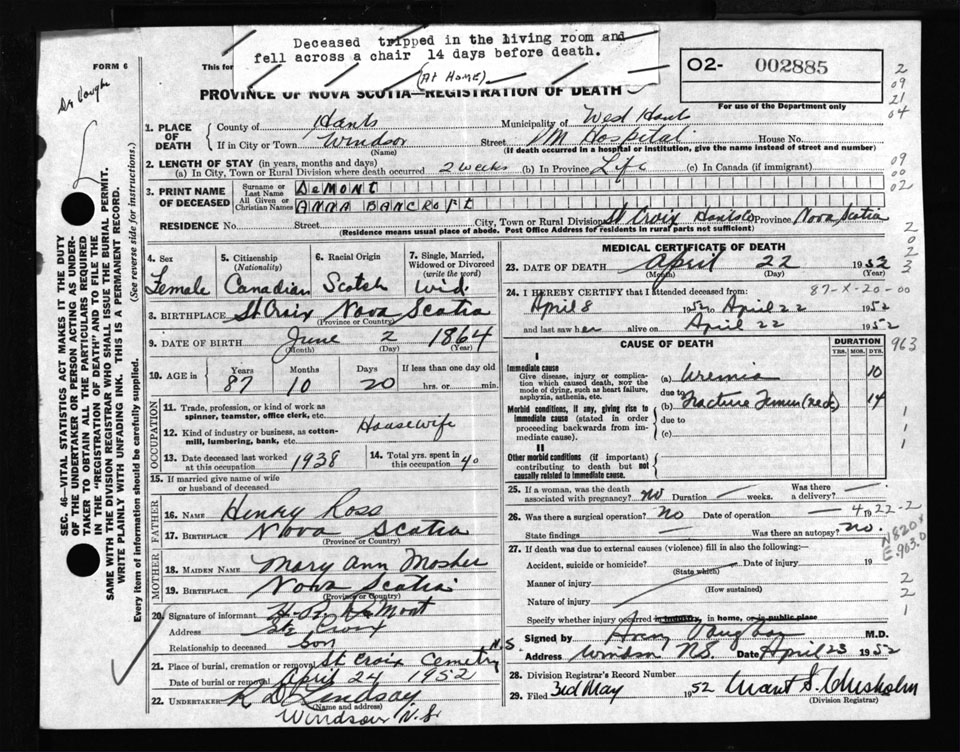 Deceased tripped in the living room and
fell across a chair 14 days before death.
(AT HOME)
FORM 6
This for
O2- 002885
For use of the Department only
PROVINCE OF NOVA SCOTIA—REGISTRATION OF DEATH
2
09
21
04
09
00
02
2
0
2
3
1. PLACE OF DEATH
County of Hants Municipality of West Hants
If in City or Town Windsor Street PM Hospital House No.
(Name) (If death occurred in a hospital or institution, give the name instead of street and number)
2. LENGTH OF STAY (in years, months and days)
(a) In City, Town or Rural Division where death occurred 2 weeks (b) In Province Life (c) In Canada (if immigrant)
3. PRINT NAME OF DECEASED
Surname or Last Name DEMONT
All Given or Christian Names ANNA BANCROFT
RESIDENCE No. Street City, Town or Rural Division St Croix Hants Co Province Nova Scotia
(Residence means usual place of abode. Post Office Address for residents in rural parts not sufficient)
4. Sex Female
5. Citizenship (Nationality) Canadian
6. Racial Origin Scotch
7. Single, Married, Widowed or Divorced (write the word) Wid.
8. BIRTHPLACE St Croix Nova Scotia
(Province or Country)
9. DATE OF BIRTH June 2 1864
(Month) (Day) (Year)
10. AGE in Years Months Days If less than one day old
87 10 20 hrs. or min.
OCCUPATION
11. Trade, profession, or kind of work as spinner, teamster, office clerk, etc.
12. Kind of industry or business, as cotton-mill, lumbering, bank, etc.
Housewife
13. Date deceased last worked at this occupation 1938
14. Total yrs. spent in this occupation 40
15. If married give name of wife or husband of deceased
FATHER
16. NAME Henry Ross
17. BIRTHPLACE Nova Scotia
(Province or Country)
MOTHER
18. MAIDEN NAME Mary Ann Mosher
19. BIRTHPLACE Nova Scotia
(Province or Country)
20. Signature of informant DeMont
Address Ste Croix
Relationship to deceased Son N.S.
21. Place of burial, cremation or removal St Croix Cemetery
Date of burial or removal April 24 1952
22. UNDERTAKER R D Lindsay
(Name and address)
Windsor N.S.
MEDICAL CERTIFICATE OF DEATH
23. DATE OF DEATH April 22 1952
(Month) (Day) (Year)
24. I HEREBY CERTIFY that I attended deceased from: 87-X-20-00
April 8 1952 to April 22 1952
and last saw her alive on April 22 1952
CAUSE OF DEATH
DURATION
YRS. MOS. DYS.
963
I
Immediate cause
Give disease, injury or complication which caused death, not the mode of dying, such as heart failure, asphyxia, asthenia, etc.
(a) Uremia 10
due to
Morbid conditions, if any, giving rise to immediate cause (stated in order proceeding backwards from immediate cause).
(b) Fracture Femur (neck) 14
due to
(c)
1
1
1
II
Other morbid conditions (if important) contributing to death but not causally related to immediate cause.
25. If a woman, was the death associated with pregnancy? No Duration weeks. Was there a delivery?
26. Was there a surgical operation? No Date of operation
4-22-2
State findings Was there an autopsy? no.
N820x
E963.0
27. If death was due to external causes (violence) fill in also the following:—
Accident, suicide or homicide? Date of injury 19
(State which)
Manner of injury
(How sustained)
Nature of injury
2
2
1
Specify whether injury occurred in industry, in home, or in public place
Signed by Vaughan M.D.
Address Windsor N.S. Date April 23 1952
28. Division Registrar's Record Number
29. Filed 3rd May 1952 Grant S. Chisholm
(Division Registrar)
Dr Vaughn
SEC. 46—VITAL STATISTICS ACT MAKES IT THE DUTY
OF THE UNDERTAKER OR PERSON ACTING AS UNDER-
TAKER TO OBTAIN ALL THE PARTICULARS REQUIRED
IN THE "REGISTRATION OF DEATH" AND TO FILE THE
SAME WITH THE DIVISION REGISTRAR WHO SHALL ISSUE THE BURIAL PERMIT.
WRITE PLAINLY WITH UNFADING INK. THIS IS A PERMANENT RECORD.
Every item of information should be carefully supplied. (See reverse side for instructions.)